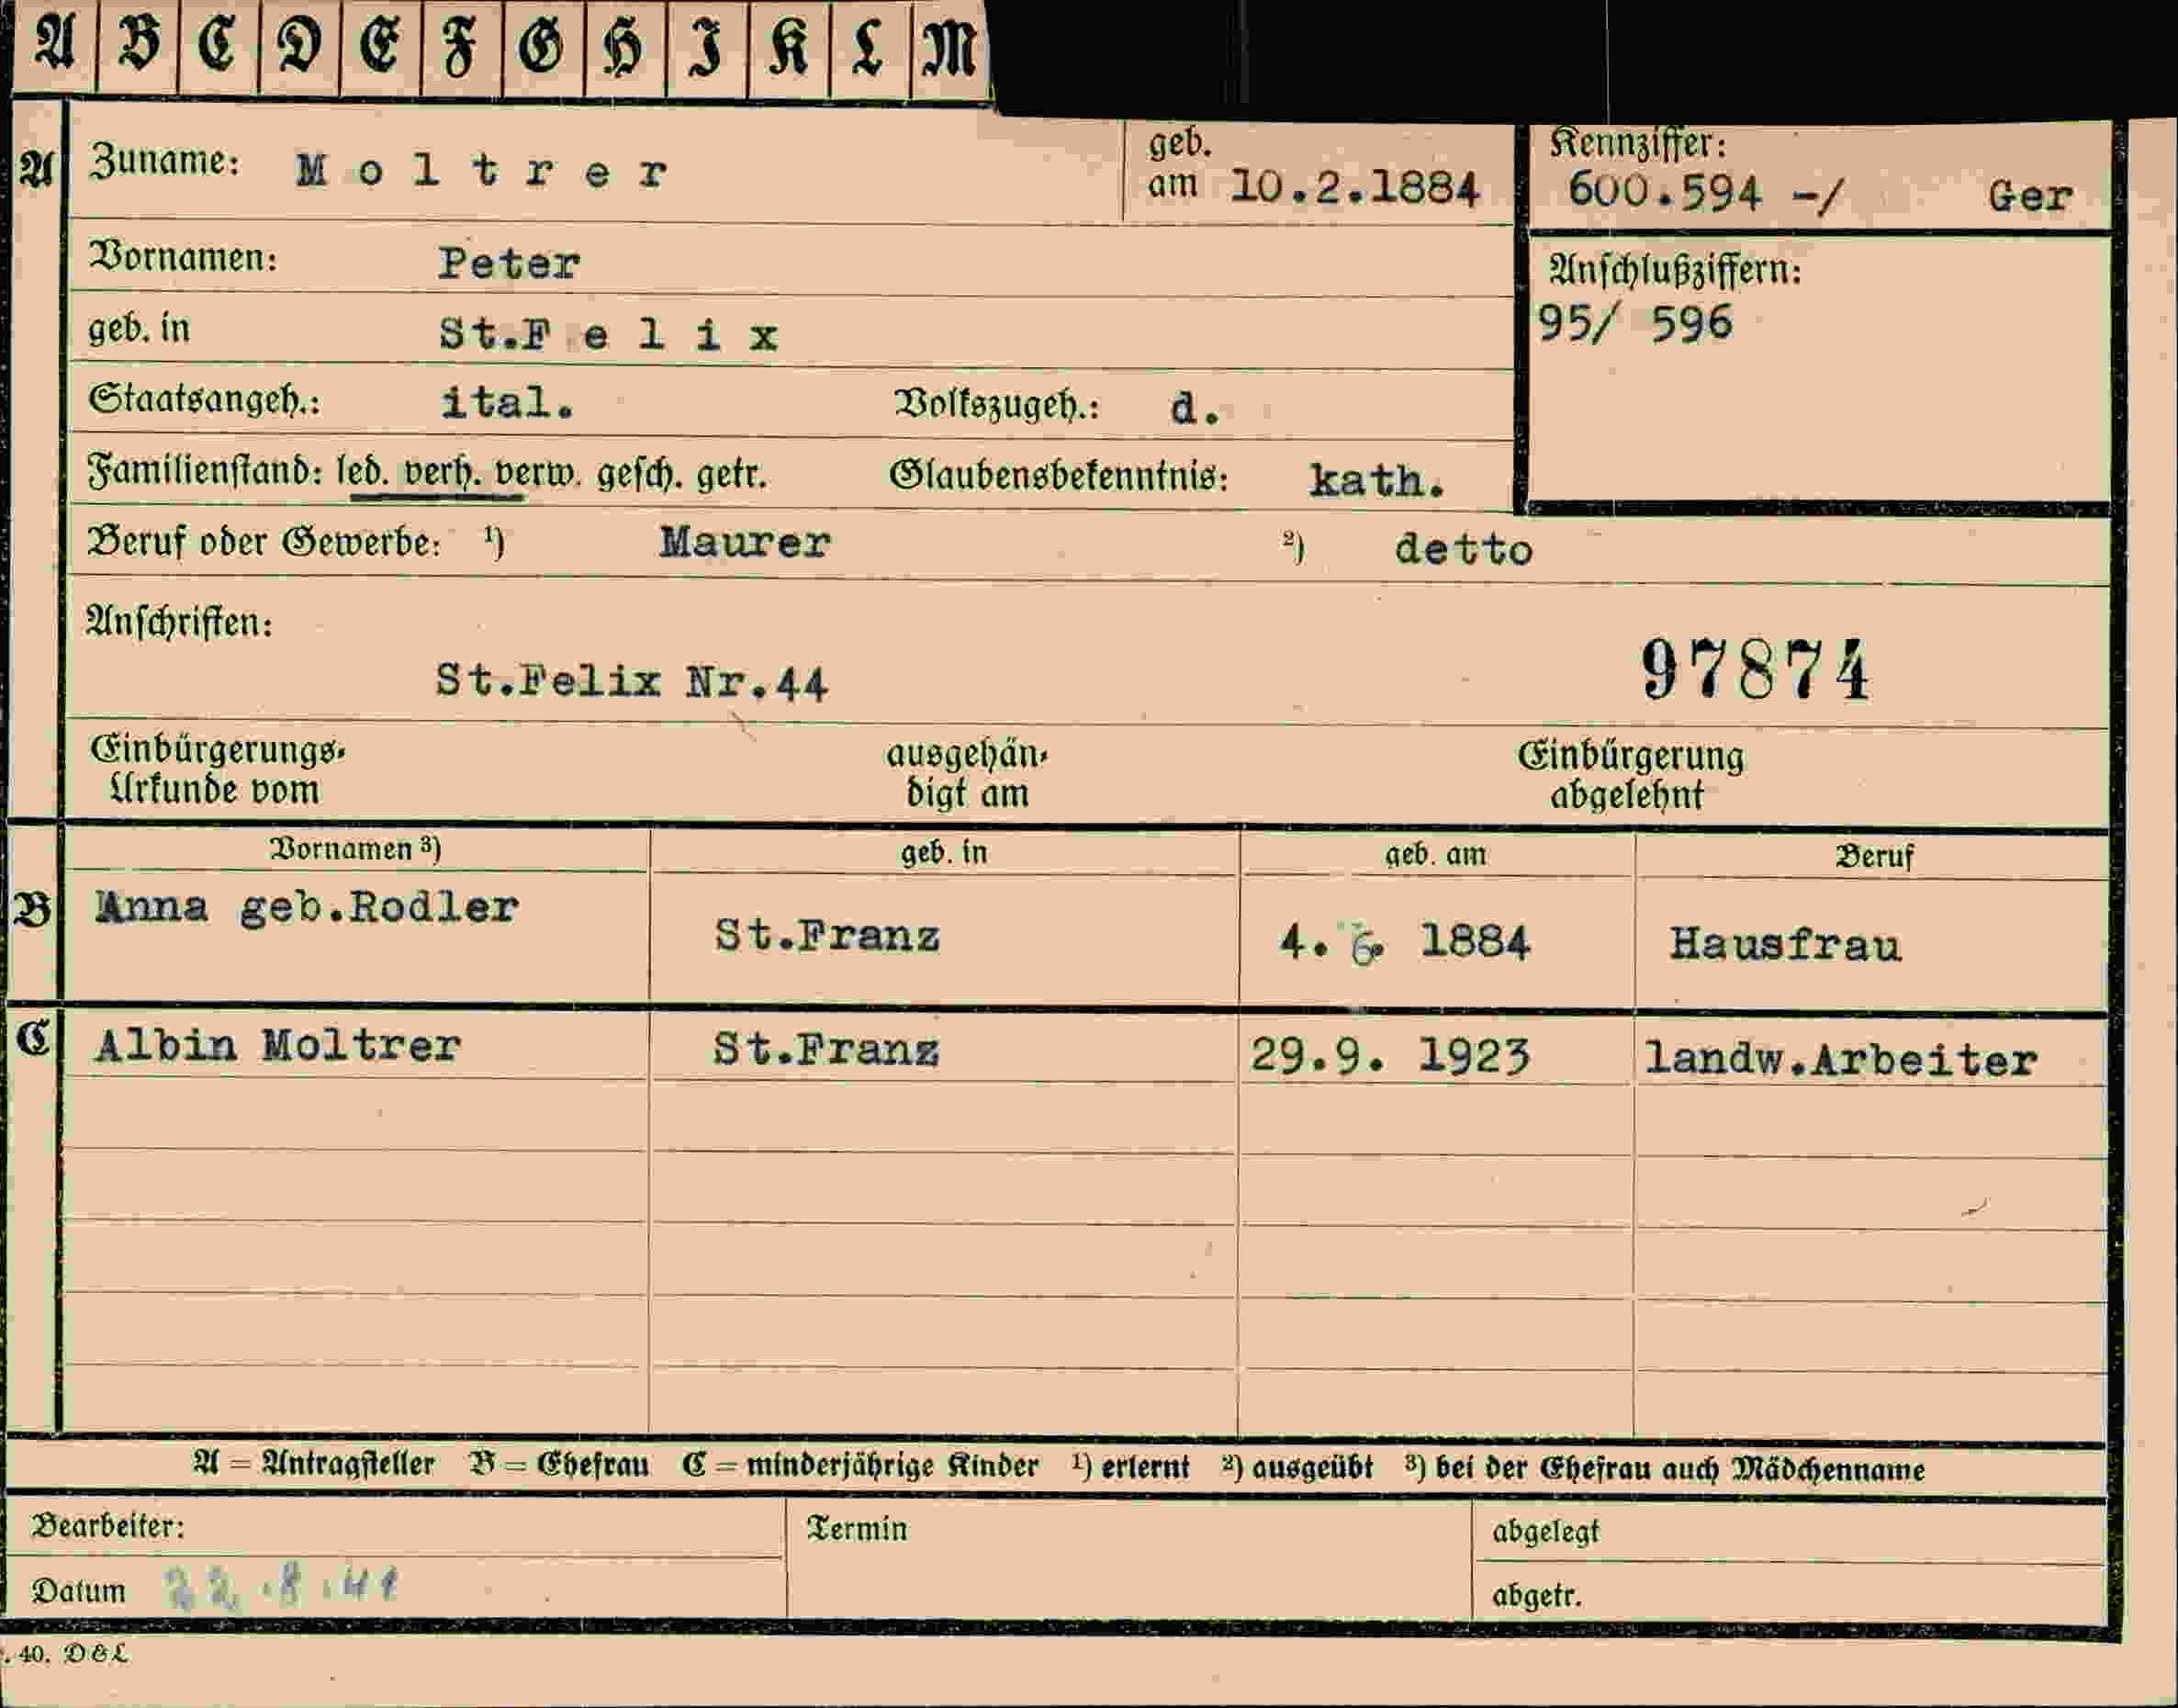 A B C D E F G H I K L M
A Zuname: Moltrer geb. am 10.2.1884 Kennziffer: 600.594 -/ Ger
Vornamen: Peter
geb. in St.Felix
Anschlußziffern:
95/ 596
Staatsangeh.: ital. Volkszugeh.: d.
Familienstand: led. verh. verw. gesch. getr. Glaubensbekenntnis: kath.
Beruf oder Gewerbe: ¹) Maurer ²) detto
Anschriften:
St.Felix Nr.44 97874
Einbürgerungs- Urkunde vom
ausgehän- digt am
Einbürgerung abgelehnt
Vornamen ³) geb. in geb. am Beruf
B Anna geb.Rodler St.Franz 4. 6. 1884 Hausfrau
C Albin Moltrer St.Franz 29.9. 1923 landw.Arbeiter
A = Antragsteller B = Ehefrau C = minderjährige Kinder ¹) erlernt ²) ausgeübt ³) bei der Ehefrau auch Mädchenname
Bearbeiter: Termin abgelegt
Datum 22.8.41 abgetr.
. 40. D&L